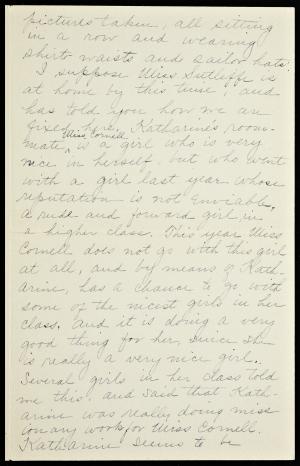 pictures taken, all sitting
in a row and wearing
shirt waists and sailor hats.
I suppose Miss Sutliffe is
at home by this time, and
has told you how we are
fixed here. Katharine's room-
mate, Miss Cornell, is a girl who is very
nice in herself, but who went
with a girl last year whose
reputation is not enviable,
a rude and forward girl in
a higher class. This year Miss
Cornell does not go with this girl
at all, and by means of Kath-
arine, has a chance to go with
some of the nicest girls in her
class. And it is doing a very
good thing for her, since she
is really a very nice girl.
Several girls in her class told
me this, and said that Kath-
arine was really doing miss
ionary work for Miss Cornell.
Katharine seems to be